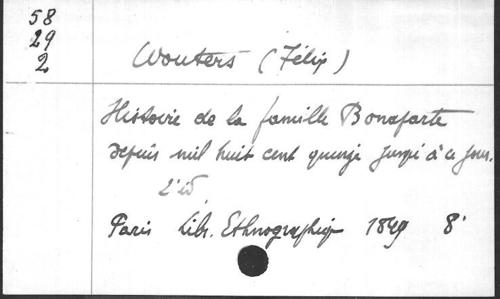 58
29
2
Wouters (Félix)
Histoire de la famille Bonaparte
depuis mil huit cent quinze jusqu'à ce jour.
2' éd.
Paris Libr. Ethnographiq 1849 8°